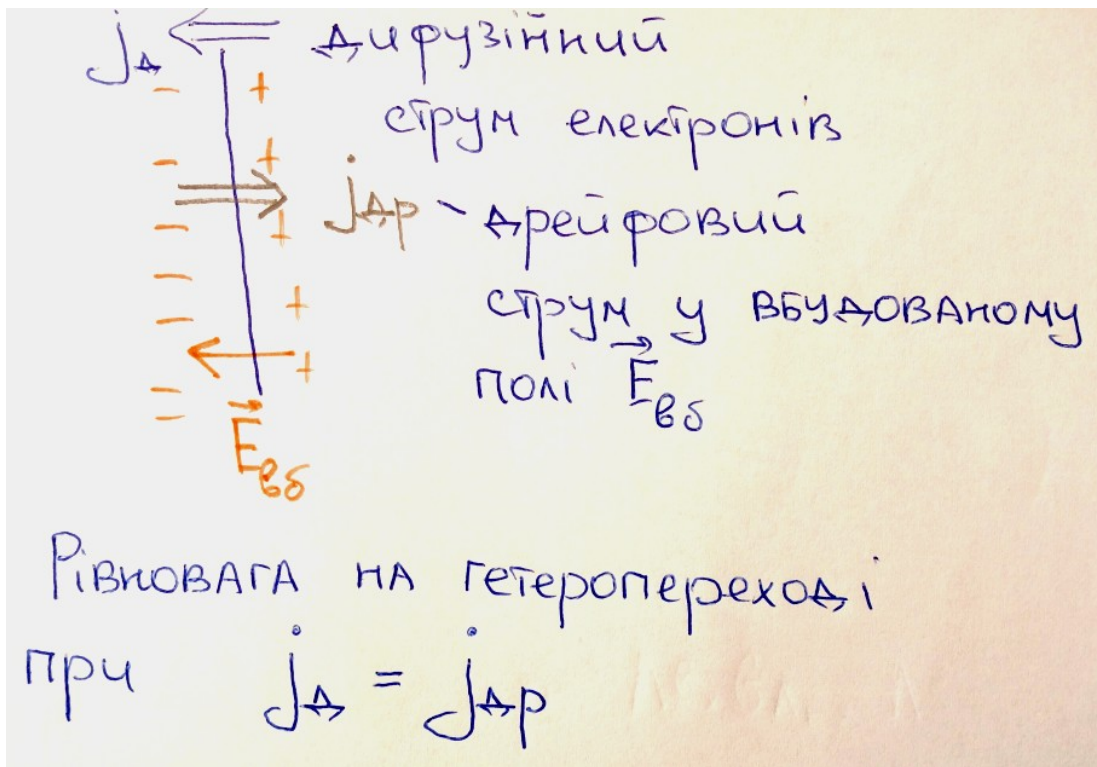 jд ⇐ дифузійний
струм електронів
jдр - дрейфовий
струм у вбудованому
полі E⃗вб
E⃗вб
Рівновага на гетеропереході
при jд = jдр